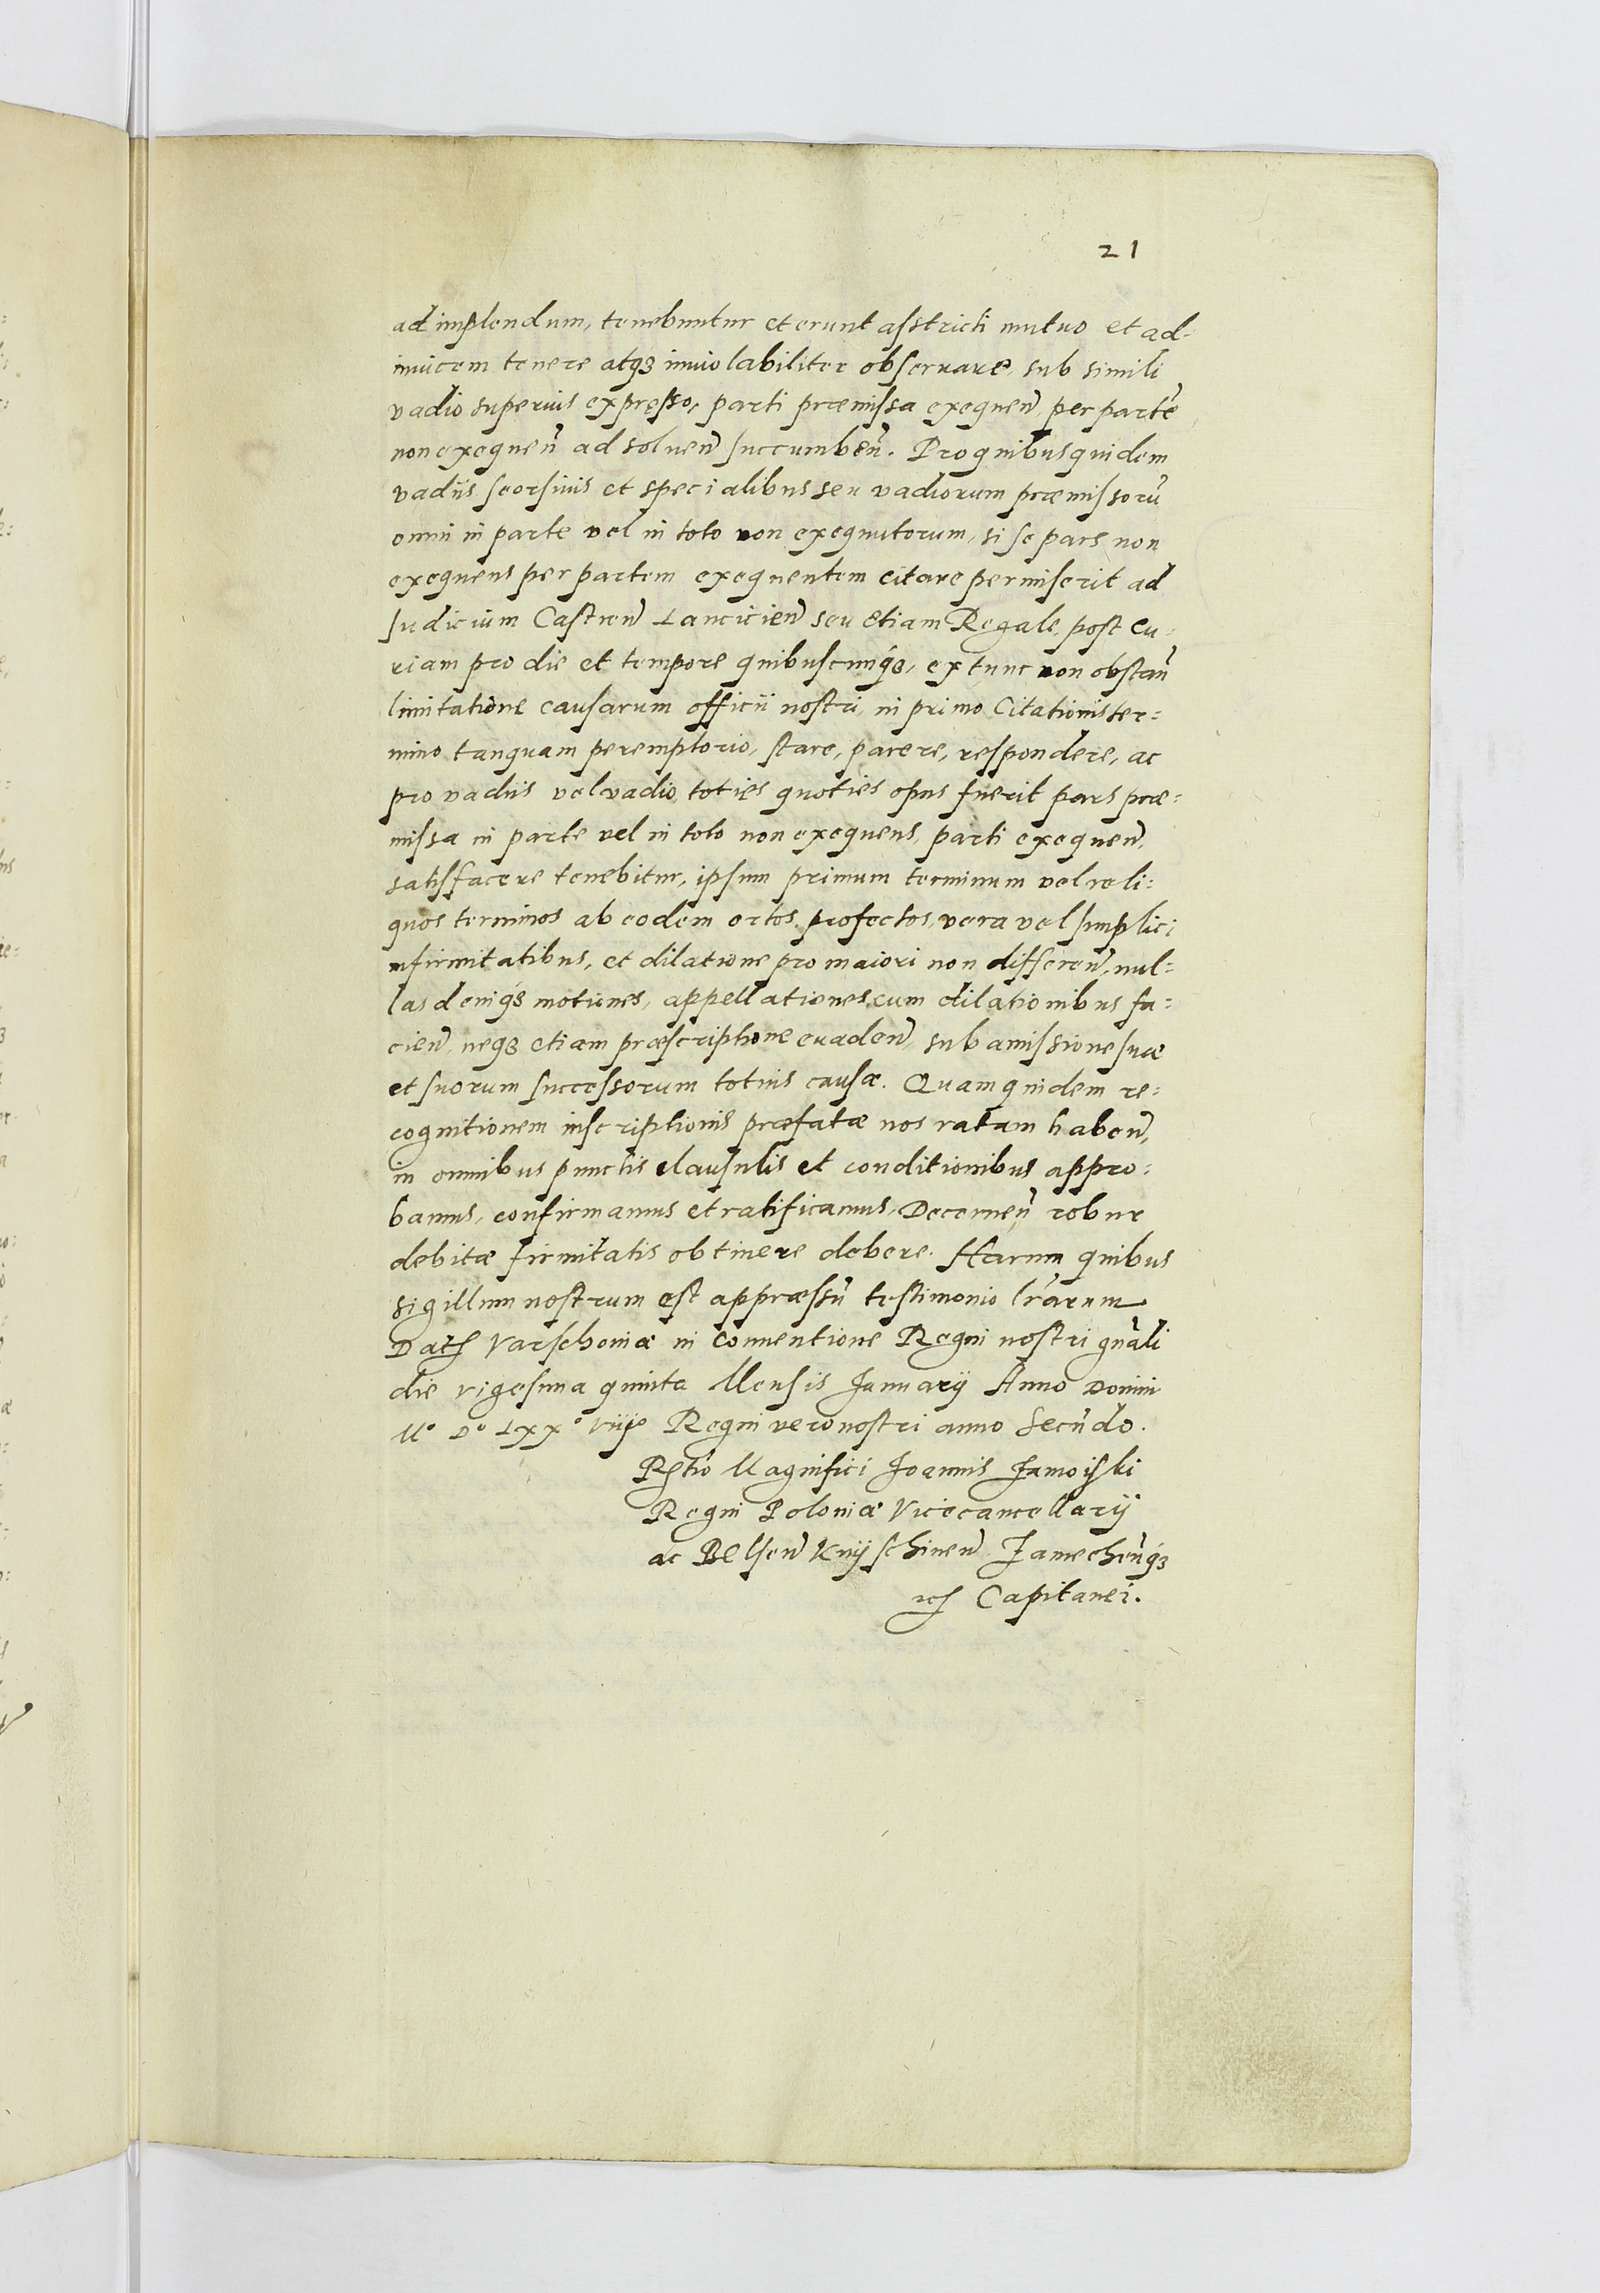 21
adimplendum, tenebuntur et erunt asstricti mutuo et ad=
inuicem tenere atq3 inuiolabiliter obseruare, sub simili
vadio superius expresso, parti præmissa exequen̄, per partē
non exequen̄ ad soluen̄ succumben̄. Pro quibus quidem
vadiis seorsiuis et specialibus seu vadiorum præmissorū
omni in parte vel in toto non exequutorum, si se pars non
exequens per partem exequentem citare permiserit ad
Iudicium Castren̄ Lancicien̄ seu etiam Regale, post cu=
riam pro die et tempore quibuscunq3, ex tunc non obstan̄
limitatione causarum officii nostri, in primo Citationis ter=
mino tanquam peremptorio, stare, parere, respondere, ac
pro vadiis vel vadio, toties quoties opus fuerit pars præ=
missa in parte vel in toto non exequens, parti exequen̄,
satisfacere tenebitur, ipsum primum terminum vel reli=
quos terminos ab eodem ortos, profectos, vera vel simplici
infirmitatibus, et dilatione pro maiori non differen̄, nul=
las deniq3 motiones, appellationes cum dilationibus fa=
cien̄, neq3 etiam præscriptione euaden̄, sub amissione suæ
et suorum successorum totius causæ. Quam quidem re=
cognitionem inscriptionis præfatæ nos ratam haben̄,
in omnibus punctis clausulis et conditionibus appro=
bamus, confirmamus et ratificamus, Decernen̄ robur
debitæ firmitatis obtinere debere. Harum quibus
sigillum nostrum est appræssū testimonio lrārum
Dat Varschoniæ in Conuentione Regni nostri gnāli
die vigesima quinta Mensis Januarij Anno Domini
Mº Dº LXXº Viijº Regni vero nostri anno Secūdo.
Rtio Magnifici Joannis Zamoiski
Regni Poloniæ Vicecancellarij
ac Belsen̄ Knijschinen̄ Zamechenq3
Capitanei.